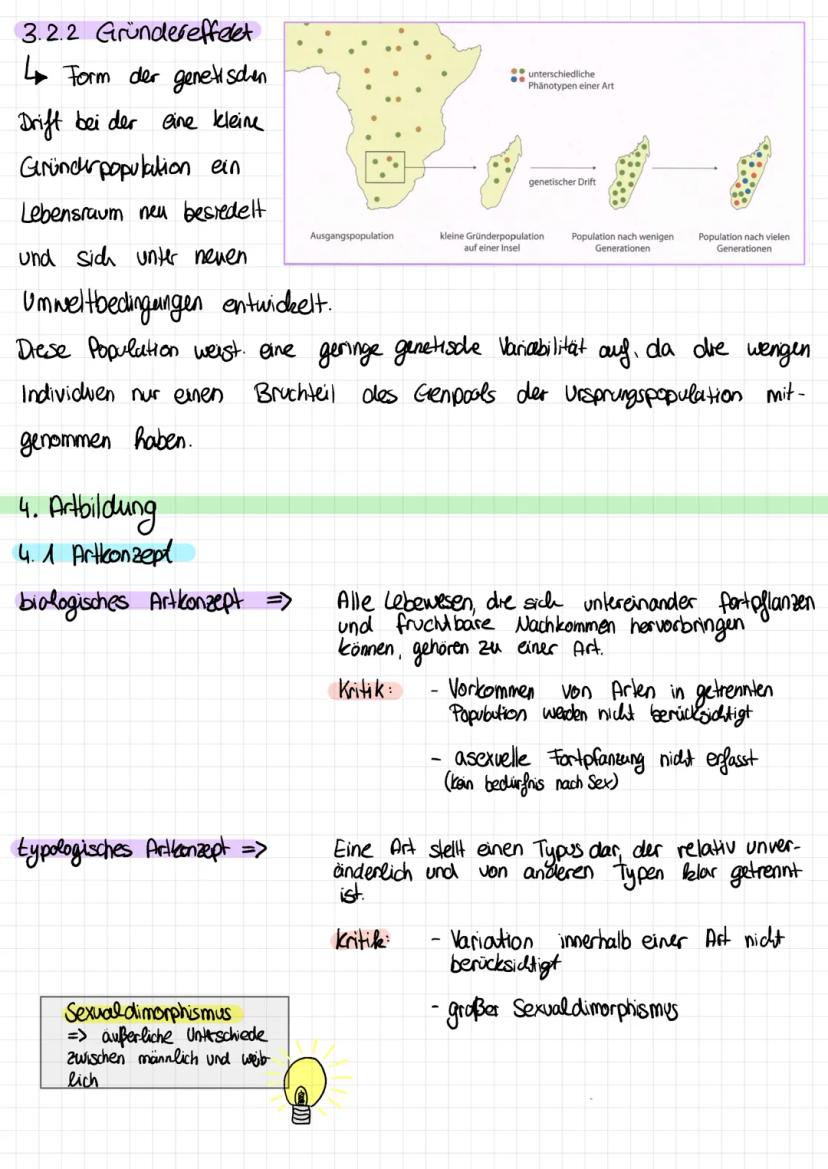 3.2.2 Gründereffekt
↳ Form der genetischen
Drift bei der eine kleine
Gründerpopulation ein
Lebensraum neu besiedelt
und sich unter neuen
Umweltbedingungen entwickelt.
unterschiedliche
Phänotypen einer Art
genetischer Drift
Ausgangspopulation
kleine Gründerpopulation
auf einer Insel
Population nach wenigen
Generationen
Population nach vielen
Generationen
Diese Population weist eine geringe genetische Variabilität auf, da die wenigen
Individuen nur einen Bruchteil des Genpools der Ursprungspopulation mit-
genommen haben.
4. Artbildung
4.1 Artkonzept
biologisches Artkonzept =>
Alle Lebewesen, die sich untereinander fortpflanzen
und fruchtbare Nachkommen hervorbringen
können, gehören zu einer Art.
Kritik:
- Vorkommen von Arten in getrennten
Population werden nicht berücksichtigt
- asexuelle Fortpfanzung nicht erfasst
(kein bedürfnis nach Sex)
typologisches Artkonzept =>
Eine Art stellt einen Typus dar, der relativ unver-
änderlich und von anderen Typen klar getrennt
ist.
Kritik:
- Variation innerhalb einer Art nicht
berücksichtigt
- großer Sexualdimorphismus
Sexualdimorphismus
=> äußerliche Unterschiede
zwischen männlich und weib
lich